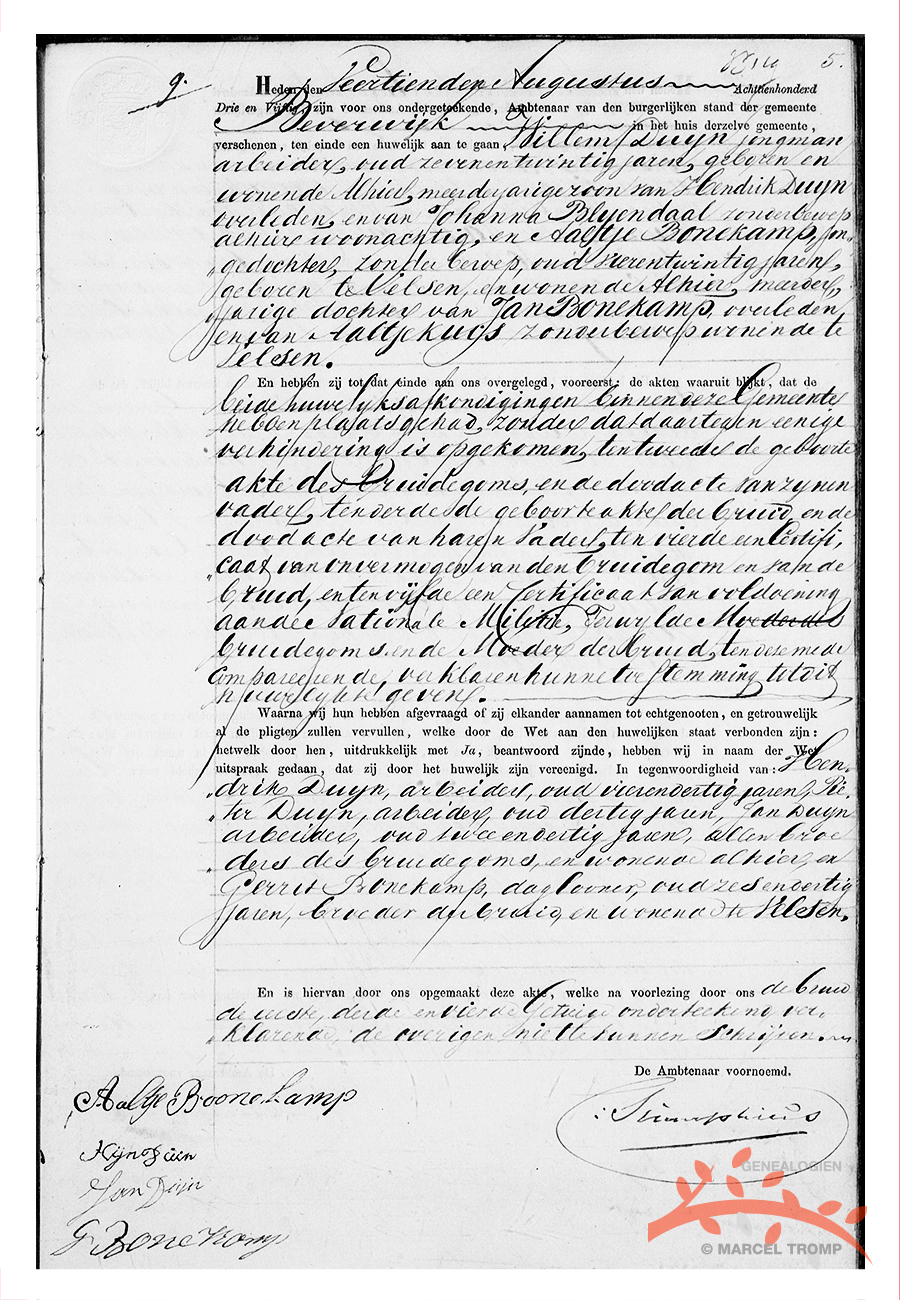 5.
9.
Heden den Veertienden Augustus Achttienhonderd
Drie en Vijftig zijn voor ons ondergeteekende, Ambtenaar van den burgerlijken stand der gemeente
Beverwijk in het huis derzelve gemeente,
verschenen, ten einde een huwelijk aan te gaan Willem Duyn jongman
arbeider, oud zevenentwintig jaren, geboren en
wonende Alhier, meerderjarige zoon van Hendrik Duyn
overleden, en van Johanna Blyendaal zonder beroep
alhier woonachtig, en Aaltje Bonekamp, jon„
„gedochter, zonder beroep, oud jaren,
geboren te Velsen, en wonende Alhier, meerder„
„jarige dochter van Jan Bonekamp, overleden
en van Aaltje Kuijs zonder beroep wonende te
Velsen.
En hebben zij tot dat einde aan ons overgelegd, vooreerst: de akten waaruit blijkt, dat de
beide huwelyksafkondigingen binnen deze Gemeente
hebben plaats gehad, zonder dat daartegen eenige
verhindering is opgekomen, ten tweede de geboorte
akte des Bruidegoms, en de doodacte van zynen
vader, ten derde de geboorteakte der Bruid, en de
doodacte van haren Vader, ten vierde een Certifi„
„caat van onvermogen van den Bruidegom en van de
Bruid, en ten vyfde een Certificaat van voldoening
aan de Nationale Militie, Terwylde Moeder des
Bruidegoms en de Moeder der Bruid, ten deze mede
Compareerende, verklaren hunne toestemming tot dit
huwelyk te geven.
Waarna wij hun hebben afgevraagd of zij elkander aannamen tot echtgenooten, en getrouwelijk
al de pligten zullen vervullen, welke door de Wet aan den huwelijken staat verbonden zijn:
hetwelk door hen, uitdrukkelijk met Ja, beantwoord zijnde, hebben wij in naam der Wet
uitspraak gedaan, dat zij door het huwelijk zijn vereenigd. In tegenwoordigheid van: Hen„
„drik Duyn, arbeider, oud vierendertig jaren, Pie„
„ter Duyn, arbeider, oud dertig jaren, Jan Duyn
arbeider, oud tweeendertig jaren, allen broe„
„ders des bruidegoms, en wonende alhier, en
Gerrit Bonekamp, daglooner, oud zesendertig
jaren, broeder der bruid, en wonende te Velsen.
En is hiervan door ons opgemaakt deze akte, welke na voorlezing door ons de bruid
de eerste, derde en vierde Getuige onderteekend ver„
„klarende, de overigen niet te kunnen schrijven.
De Ambtenaar voornoemd.
Aaltje Boonekamp
Jan Duyn
G Bonekamp
GENEALOGIEN
© MARCEL TROMP